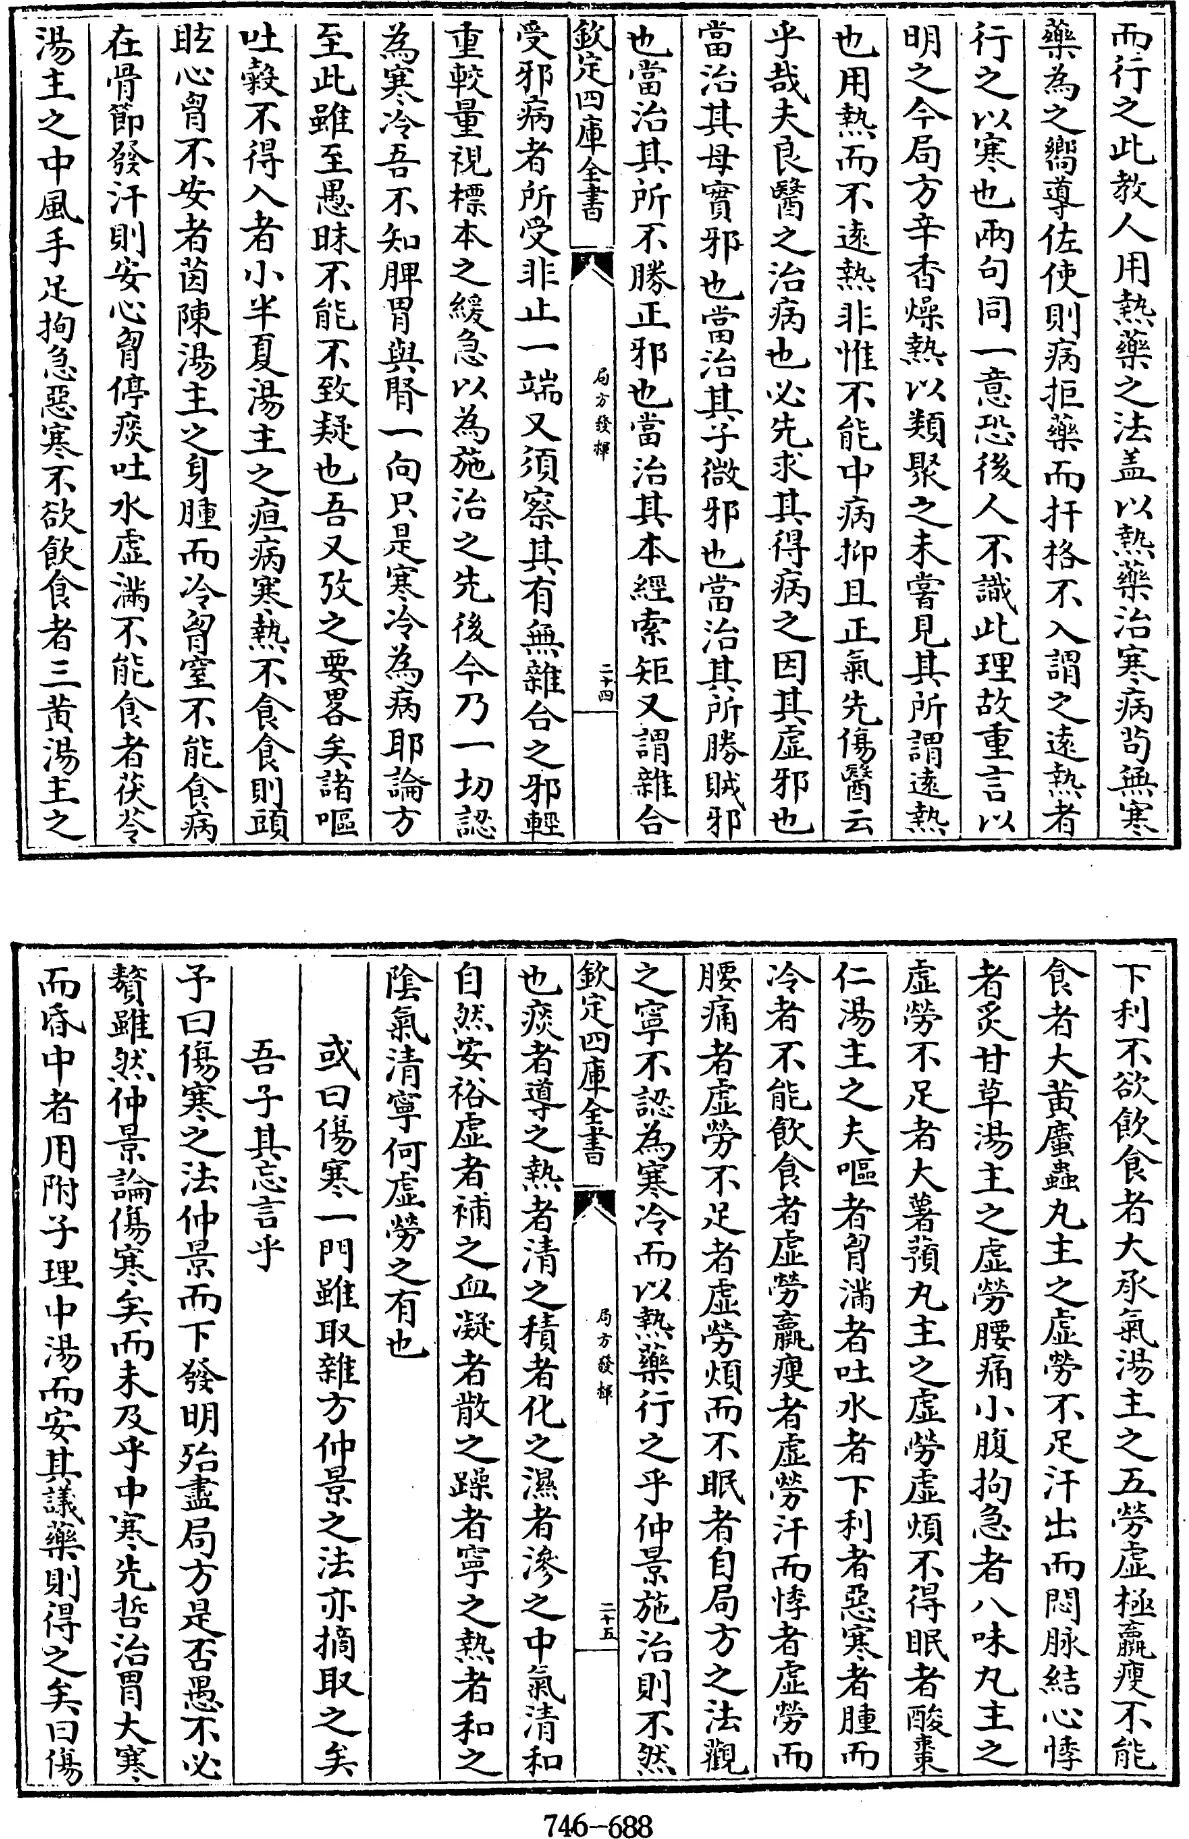 而行之此教人用熱藥之法盖以熱藥治寒病苟無寒
藥為之嚮導佐使則病拒藥而扞格不入謂之逺熱者
行之以寒也兩句同一意恐後人不識此理故重言以
明之今局方辛香燥熱以類聚之未嘗見其所謂逺熱
也用熱而不逺熱非惟不能中病抑且正氣先傷醫云
乎哉夫良醫之治病也必先求其得病之因其虛邪也
當治其母實邪也當治其子微邪也當治其所勝賊邪
也當治其所不勝正邪也當治其本經索矩又謂雜合
欽定四庫全書
局方發揮
二十四
受邪病者所受非止一端又須察其有無雜合之邪輕
重較量視標本之緩急以為施治之先後今乃一切認
為寒冷吾不知脾胃與腎一向只是寒冷為病耶論方
至此雖至愚昧不能不致疑也吾又攷之要畧矣諸嘔
吐穀不得入者小半夏湯主之疸病寒熱不食食則頭
眩心胷不安者茵陳湯主之身腫而冷胷窒不能食病
在骨節發汗則安心胷停痰吐水虛滿不能食者茯苓
湯主之中風手足拘急惡寒不欲飲食者三黄湯主之
下利不欲飲食者大承氣湯主之五勞虛極羸瘦不能
食者大黄䗪蟲丸主之虛勞不足汗出而悶脉結心悸
者炙甘草湯主之虛勞腰痛小腹拘急者八味丸主之
虛勞不足者大薯蕷丸主之虛勞虛煩不得眠者酸棗
仁湯主之夫嘔者胷滿者吐水者下利者惡寒者腫而
冷者不能飲食者虛勞羸瘦者虛勞汗而悸者虛勞而
腰痛者虛勞不足者虛勞煩而不眠者自局方之法觀
之寧不認為寒冷而以熱藥行之乎仲景施治則不然
欽定四庫全書
局方發揮
二十五
也痰者導之熱者清之積者化之濕者滲之中氣清和
自然安裕虛者補之血凝者散之躁者寧之熱者和之
陰氣清寧何虛勞之有也
或曰傷寒一門雖取雜方仲景之法亦摘取之矣
吾子其忘言乎
予曰傷寒之法仲景而下發明殆盡局方是否愚不必
贅雖然仲景論傷寒矣而未及乎中寒先哲治胃大寒
而昏中者用附子理中湯而安其議藥則得之矣曰傷
746-688